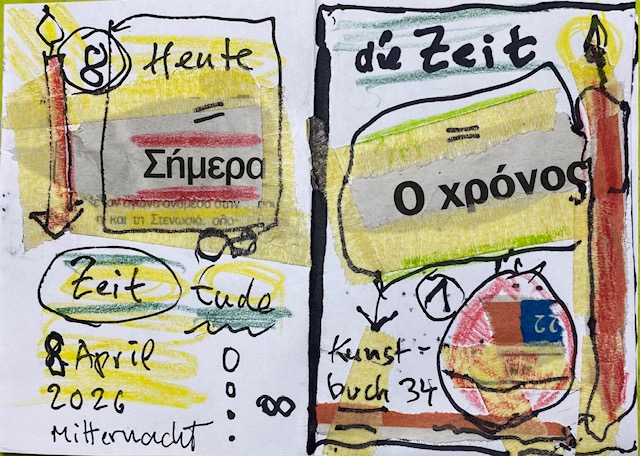 8 Heute
=
Σήμερα
και τη Στενωπό, ολο-
Zeit tude
8 April
2026
Mitternacht
die Zeit
=
Ο χρόνος
1
22
Kunst=
buch 34